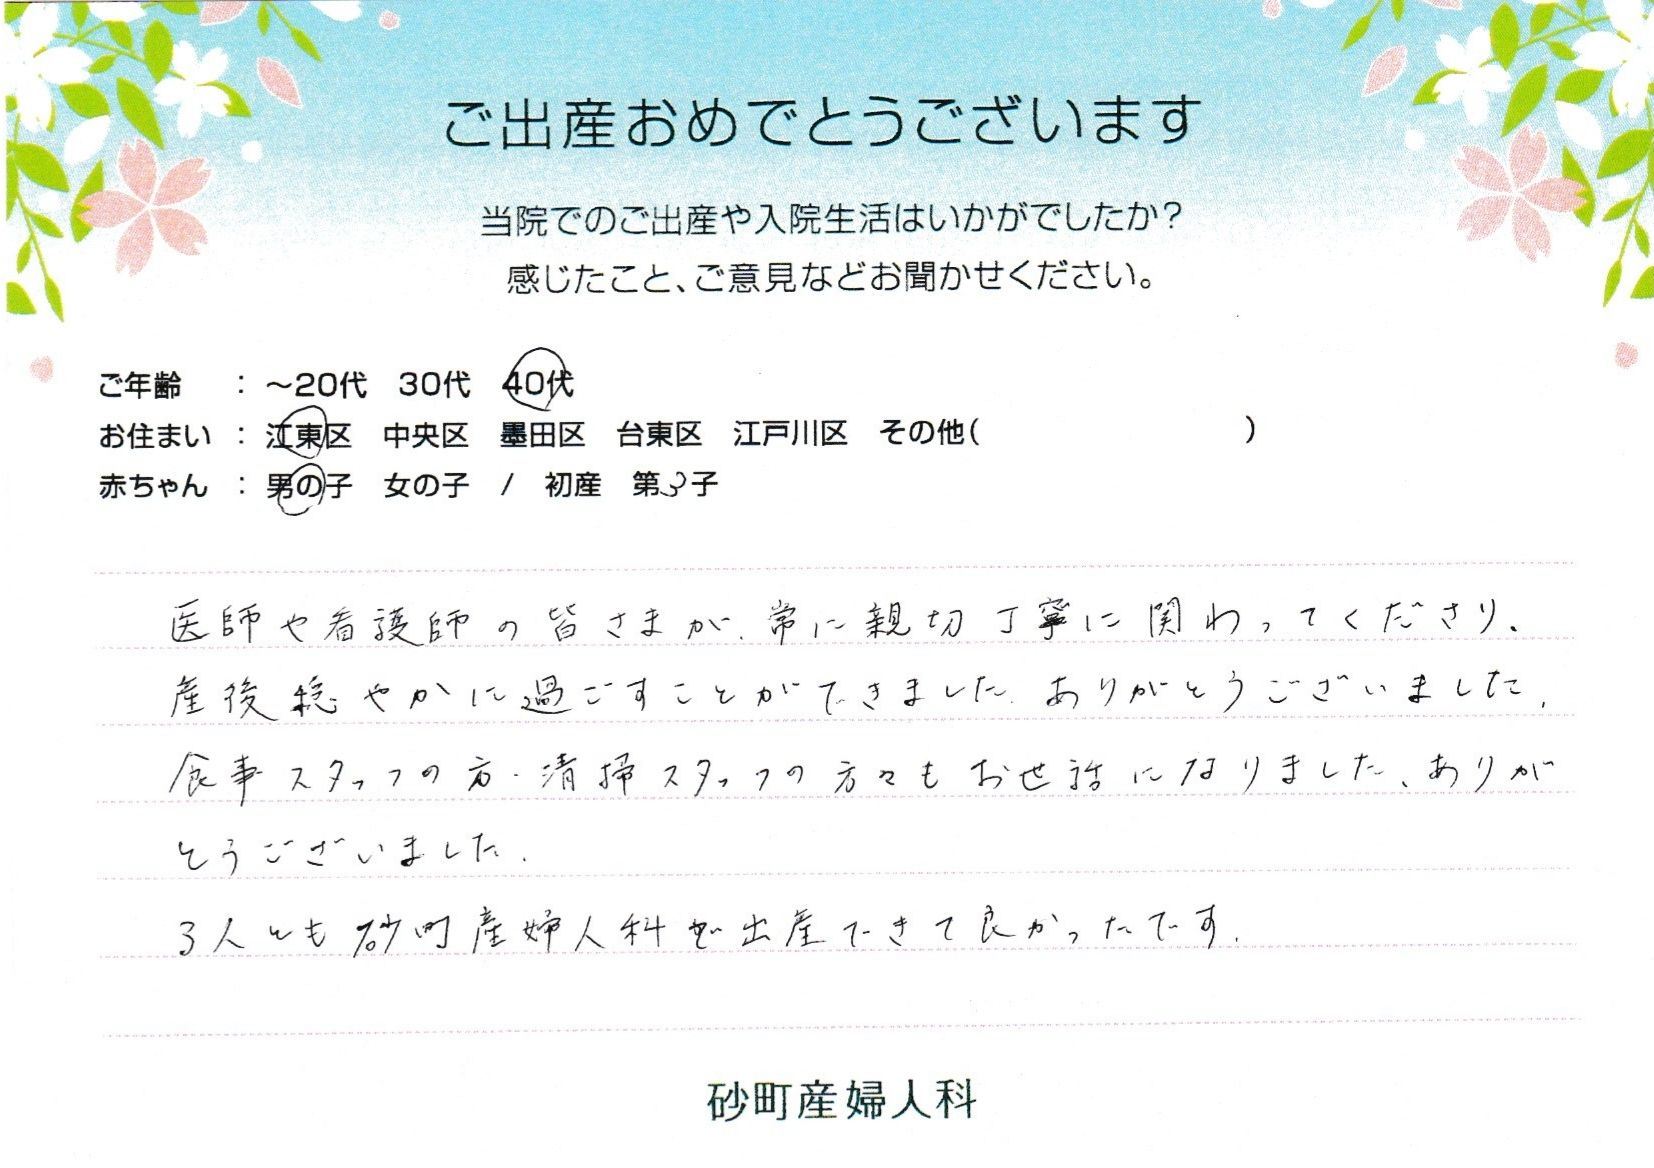 ご出産おめでとうございます
当院でのご出産や入院生活はいかがでしたか？
感じたこと、ご意見などお聞かせください。
ご年齢 ： ～20代 30代 40代
お住まい ： 江東区 中央区 墨田区 台東区 江戸川区 その他( )
赤ちゃん ： 男の子 女の子 / 初産 第3子
医師や看護師の皆さまが、常に親切丁寧に関わってくださり、
産後穏やかに過ごすことができました。ありがとうございました。
食事スタッフの方・清掃スタッフの方々もお世話になりました、ありが
とうございました。
3人とも砂町産婦人科で出産できて良かったです。
砂町産婦人科